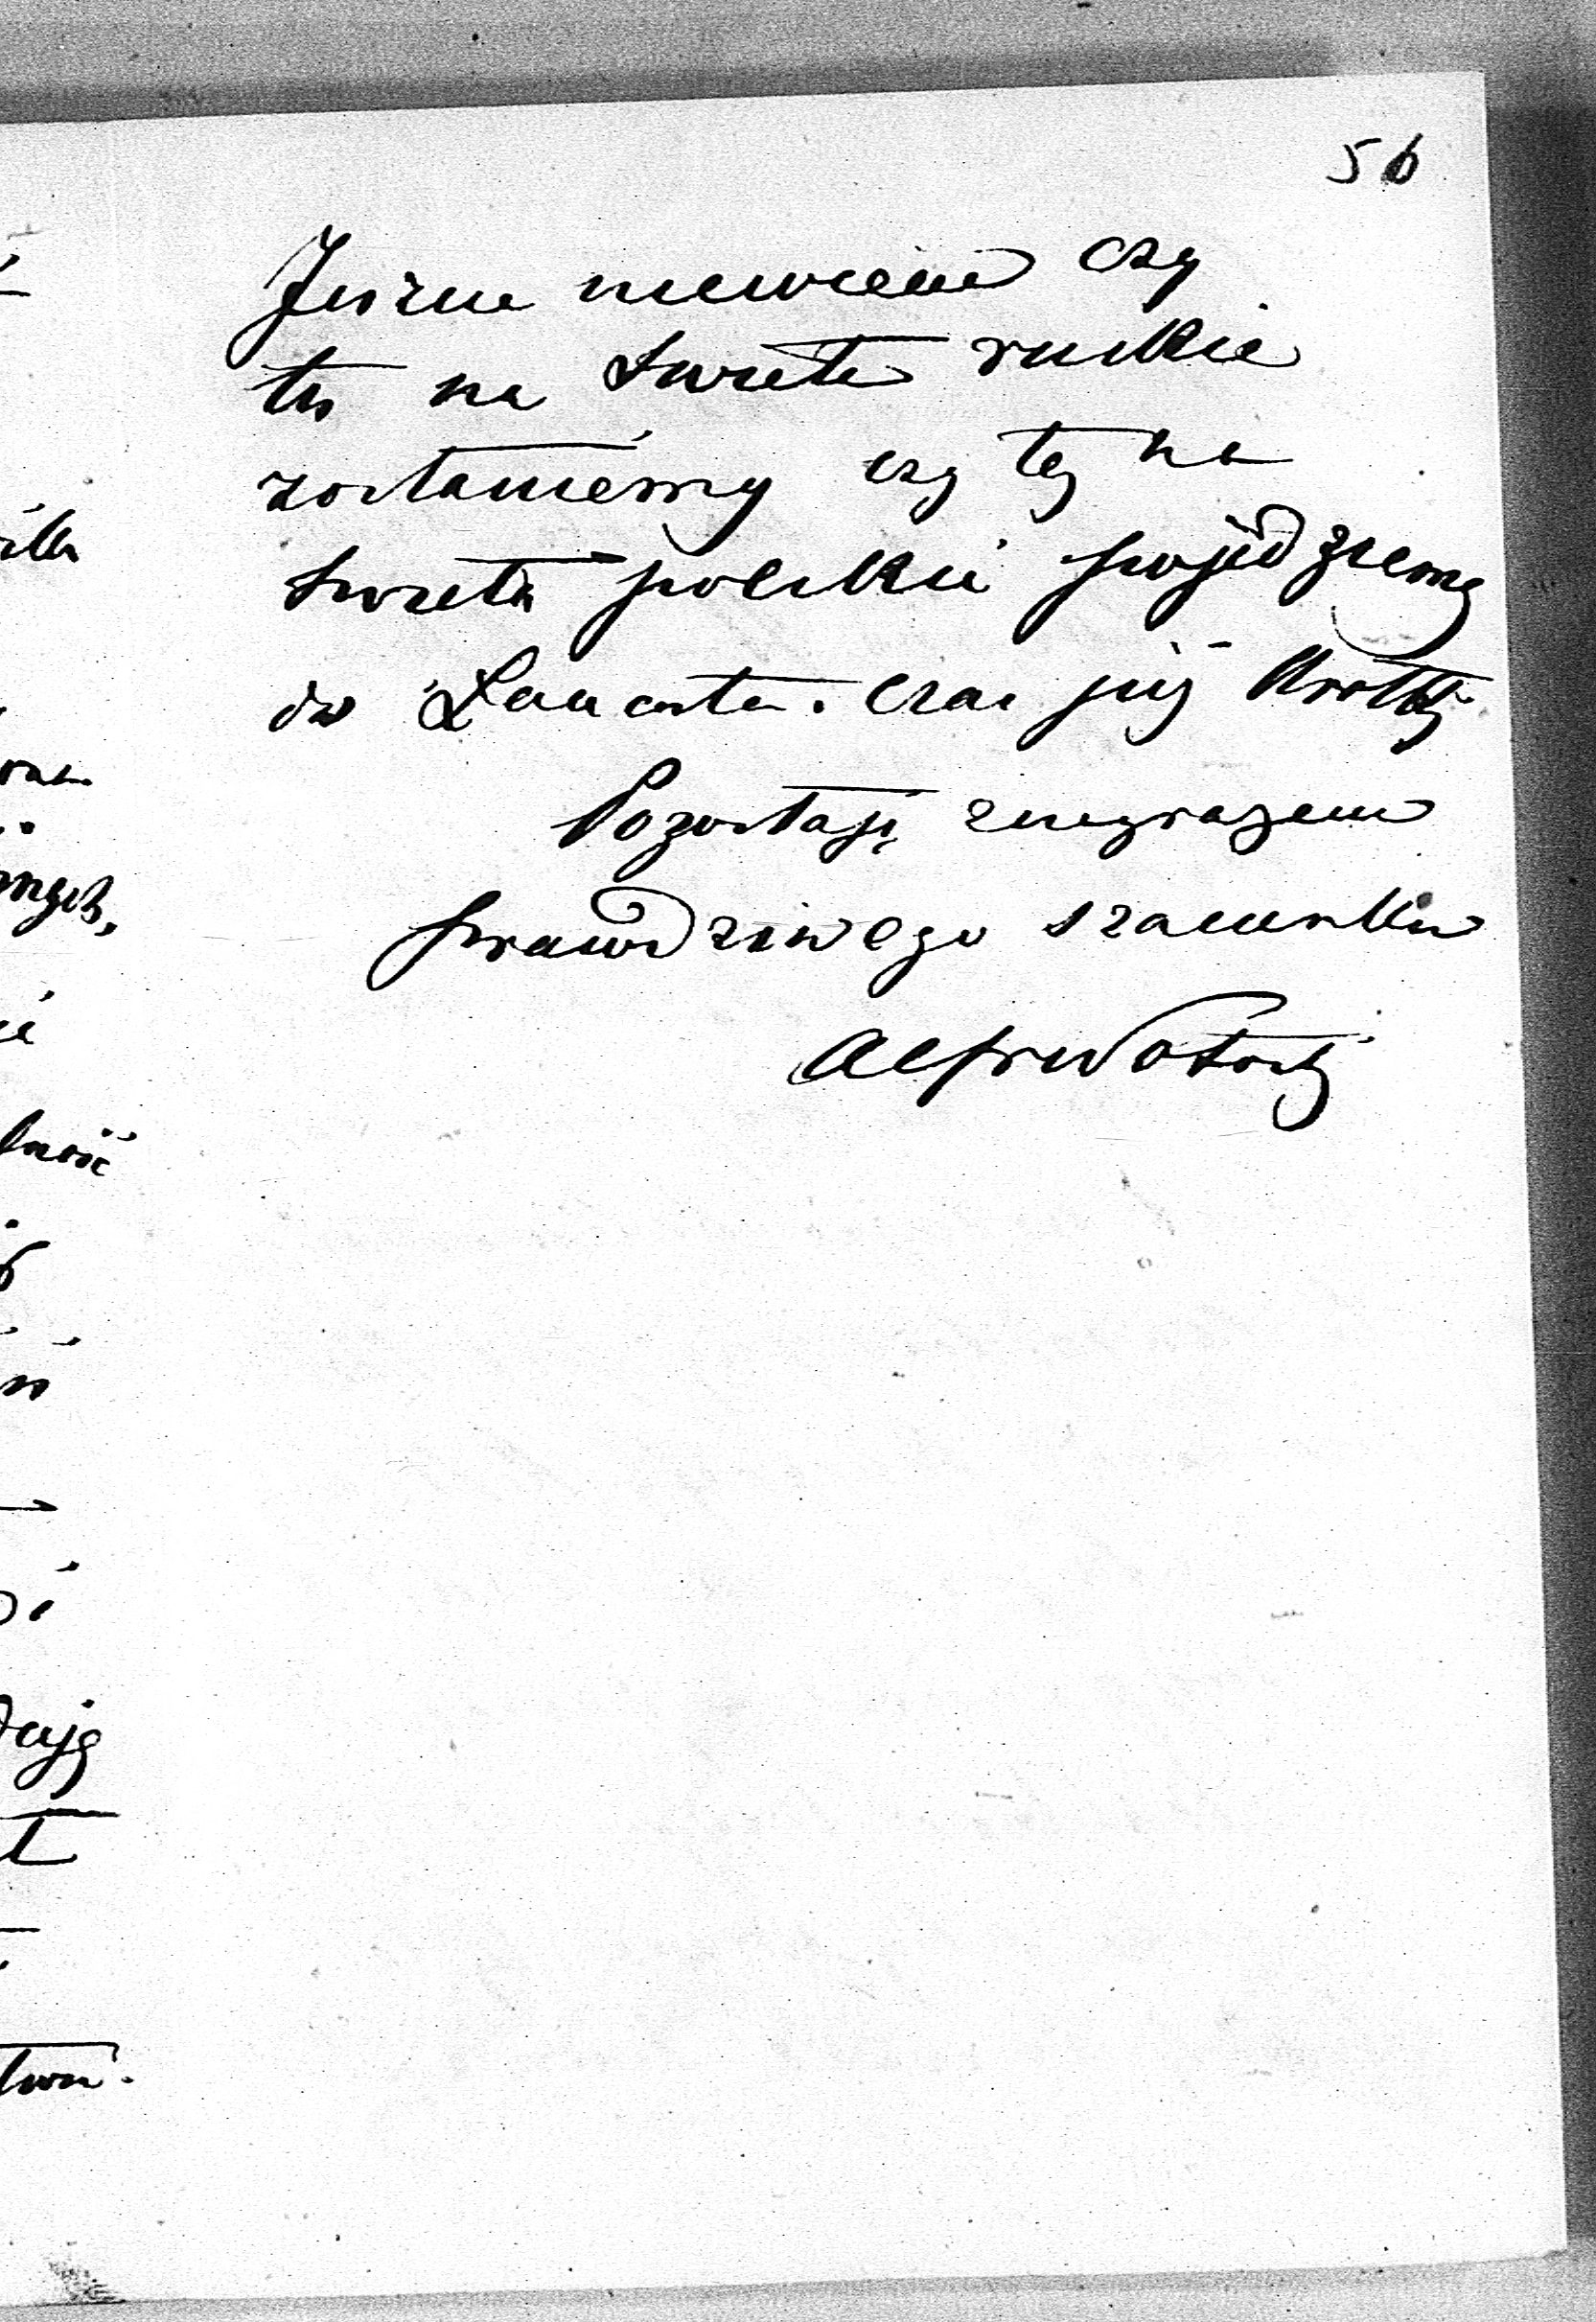 56
Jeszcze niewiem czy
tu na swieta ruskie
zostaniemy czy też na
swieta polskie pojedziemy
do Łancuta. Czas już krotki
Pozostaję z wyrazem
prawdziwego szacunku
Alfred Potocki